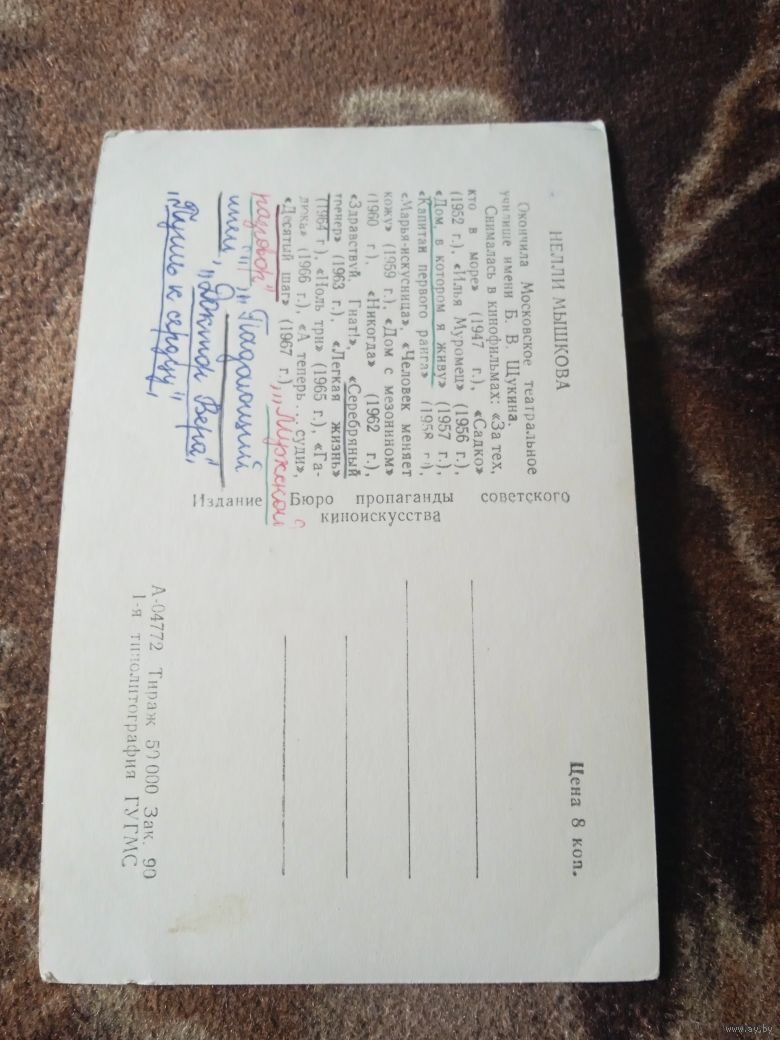 НЕЛЛИ МЫШКОВА
Окончила Московское театральное
училище имени Б. В. Щукина.
Снималась в кинофильмах: «За тех,
кто в море» (1947 г.), «Садко»
(1952 г.), «Илья Муромец» (1956 г.),
«Дом, в котором я живу» (1957 г.),
«Капитан первого ранга» (1958 г.),
«Марья-искусница», «Человек меняет
кожу» (1959 г.), «Дом с мезонином»
(1960 г.), «Никогда» (1962 г.),
«Здравствуй, Гнат!», «Серебряный
тренер» (1963 г.), «Легкая жизнь»
(1964 г.), «Ноль три» (1965 г.), «Га-
дюка» (1966 г.), «А теперь... суди»,
«Десятый шаг» (1967 г.), „Мужской
разговор"
„Падающий
иней", „Доктор Вера",
„Путь к сердцу",
Издание Бюро пропаганды советского
киноискусства
Цена 8 коп.
А-04772 Тираж 50 000 Зак. 90
1-я типолитография ГУГМС
www.ay.by